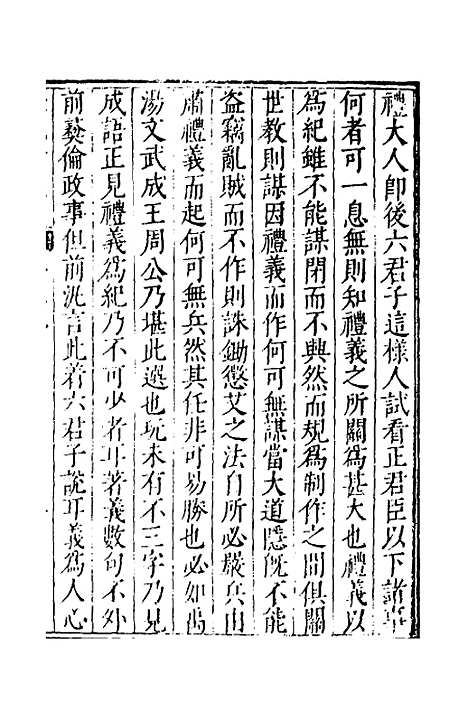 禮大人即後六君子這樣人試看正君臣以下諸事
何者可一息無則知禮義之所關為甚大也禮義以
為紀雖不能謀閉而不興然而規為制作之間俱關
世教則謀因禮義而作何可無謀當大道隱既不能
盜竊亂賊而不作則誅鋤懲艾之法自所必嚴兵由
肅禮義而起何可無兵然其任非可易勝也必如禹
湯文武成王周公乃堪此選也玩未有不三字乃見
成語正見禮義為紀乃不可少者耳著義數句不外
前彜倫政事但前汎言此着六君子說耳義為人心